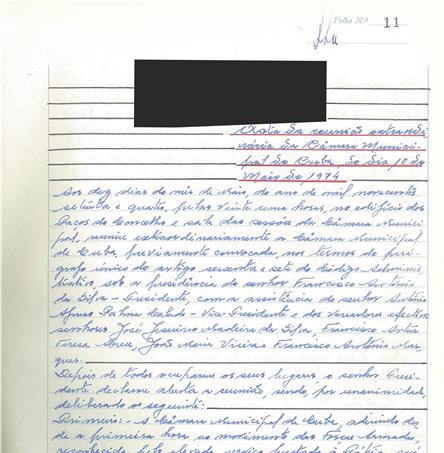 Folha N.º 11
Acta da reunião extraordi
nária da Câmara Munici-
pal de Cuba, do dia 10 de
Maio de 1974
Aos dez dias do mês de Maio, do ano de mil novecentos
setenta e quatro, pelas vinte uma horas, no edifício dos
Paços do Concelho e sala das sessões da Câmara Munici
pal, reuniu extraordinariamente a Câmara Municipal
de Cuba, previamente convocada, nos termos do pará-
grafo único do artigo sessenta e sete do Código Adminis
trativo, sob a presidência do senhor Francisco António
da Silva - Presidente, com a assistência do senhor António
Palma - Vice-Presidente e dos vereadores efectivos
senhores José Madeira da Silva, Francisco
João Maria Vieira e Francisco António Mar
ques.
Depois de todos ocuparem os seus lugares, o senhor Presi-
dente declarou aberta a reunião, sendo, por unanimidade,
deliberado o seguinte:
Primeiro:- A Câmara Municipal de Cuba, aderindo des
de a primeira hora ao movimento das Forças Armadas,